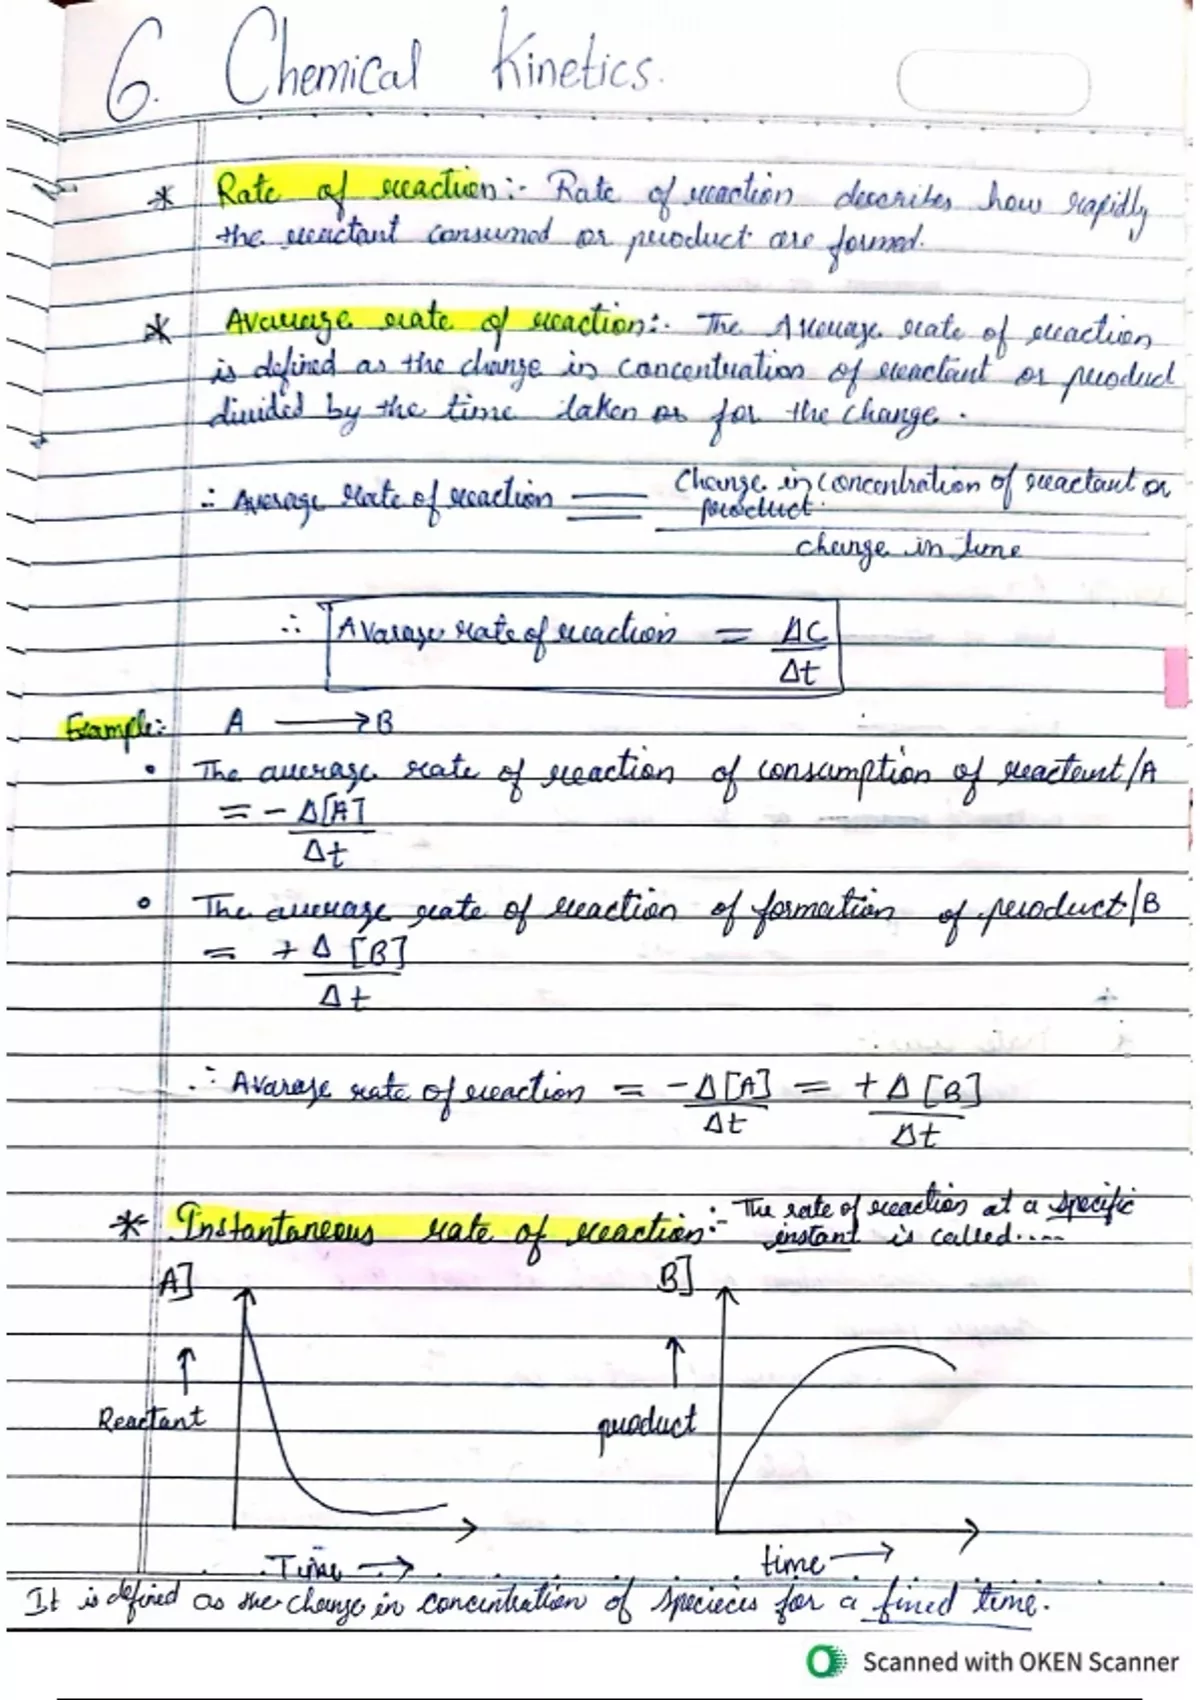 6. Chemical Kinetics.
* Rate of reaction:- Rate of reaction describes how rapidly
the reactant consumed or product are formed.
* Avarage rate of reaction:- The Average rate of reaction
is defined as the change in concentration of reactant or product
divided by the time taken or for the change.
∴ Average rate of reaction = Change in concentration of reactant or
product
change in time
∴ Avarage rate of reaction = ΔC
Δt
Example:- A ⟶ B
• The average rate of reaction of consumption of reactant/A
= - Δ[A]
Δt
• The average rate of reaction of formation of product/B
= + Δ [B]
Δt
∴ Avarage rate of reaction = -Δ[A] = +Δ [B]
Δt Δt
* Instantaneous rate of reaction:- The rate of reaction at a specific
instant is called....
A] B]
↑ ↑
Reactant product
Time → time →
It is defined as the change in concentration of specieces for a fined time.
Scanned with OKEN Scanner